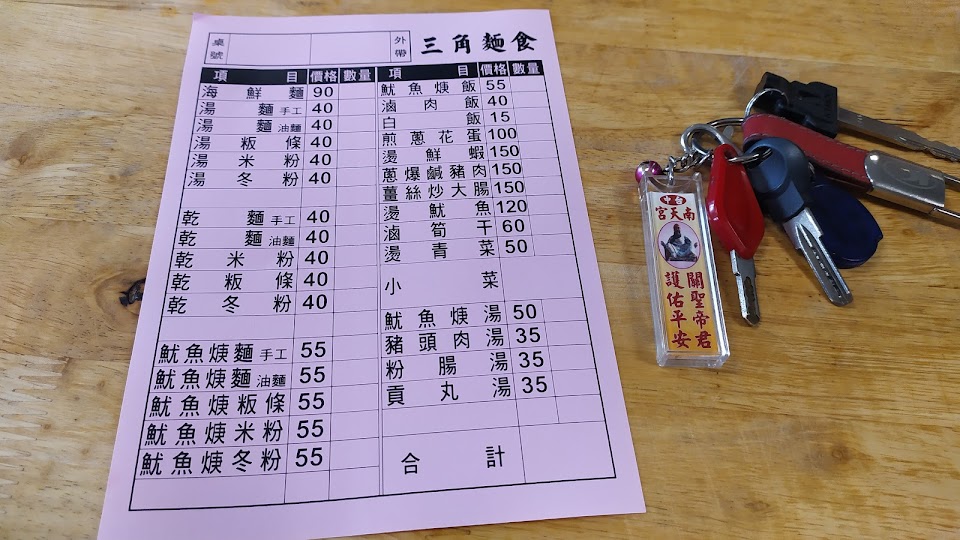 桌號
外帶
三角麵食
項目 價格 數量
海鮮麵 90
湯麵 手工 40
湯麵 油麵 40
湯粄條 40
湯米粉 40
湯冬粉 40
乾麵 手工 40
乾麵 油麵 40
乾米粉 40
乾粄條 40
乾冬粉 40
魷魚焿麵 手工 55
魷魚焿麵 油麵 55
魷魚焿粄條 55
魷魚焿米粉 55
魷魚焿冬粉 55
項目 價格 數量
魷魚焿飯 55
滷肉飯 40
白飯 15
煎蔥花蛋 100
燙鮮蝦 150
蔥爆鹹豬肉 150
薑絲炒大腸 150
燙魷魚 120
滷筍干 60
燙青菜 50
小菜
魷魚焿湯 50
豬頭肉湯 35
粉腸湯 35
貢丸湯 35
合計
南天宮
關聖帝君
護佑平安